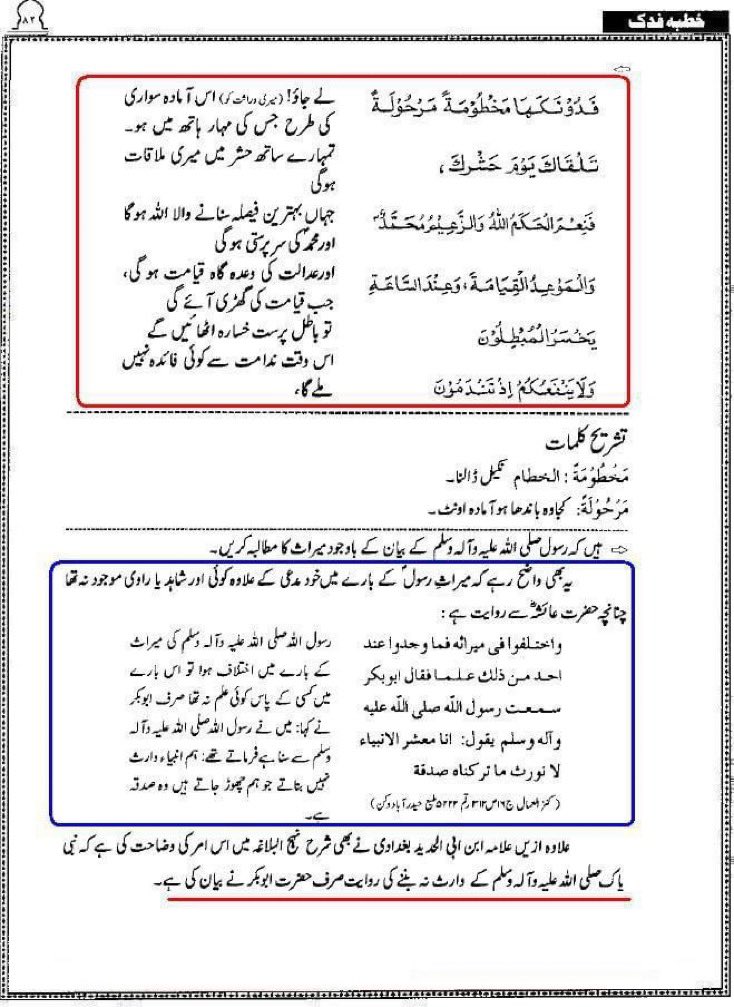 خطبہ فدک
۸۲
فَدُوْنَكَهَا مَخْطُوْمَةً مَرْحُوْلَةً
تَلْقَاكَ يَوْمَ حَشْرِكَ،
فَنِعْمَ الْحَكَمُ اللّٰهُ وَالزَّعِيْمُ مُحَمَّدٌ
وَالْمَوْعِدُ الْقِيَامَةَ، وَعِنْدَ السَّاعَةِ
يَخْسَرُ الْمُبْطِلُوْنَ
وَلَا يَنْفَعُكُمْ اِذْ تَنْدَمُوْنَ
لے جاؤ! (میری وراثت کو) اس آمادہ سواری
کی طرح جس کی مہار ہاتھ میں ہو۔
تمہارے ساتھ حشر میں میری ملاقات
ہوگی
جہاں بہترین فیصلہ سنانے والا اللہ ہوگا
اور محمدؐ کی سرپرستی ہوگی
اور عدالت کی وعدہ گاہ قیامت ہوگی،
جب قیامت کی گھڑی آئے گی
تو باطل پرست خسارہ اٹھائیں گے
اس وقت ندامت سے کوئی فائدہ نہیں
ملے گا،
تشریح کلمات
مَخْطُوْمَةً: الخطام نکیل ڈالنا۔
مَرْحُوْلَةً: کجاوہ باندھا ہو آمادہ اونٹ۔
ہیں کہ رسول صلی اللہ علیہ وآلہ وسلم کے بیان کے باوجود میراث کا مطالبہ کریں۔
یہ بھی واضح رہے کہ میراثِ رسولؐ کے بارے میں خود مدعی کے علاوہ کوئی اور شاہد یا راوی موجود نہ تھا
چنانچہ حضرت عائشہؓ سے روایت ہے:
واختلفوا فى ميراثه فما وجدوا عند
احد من ذلك علما فقال ابوبكر
سمعت رسول الله صلى الله عليه
وآله وسلم يقول: انا معشر الانبياء
لا نورث ما تركناه صدقة
(کنز العمال ج۱۶ ص۳۱۲ رقم ۵۲۲۳ طبع حیدرآباد دکن)
رسول اللہ صلی اللہ علیہ وآلہ وسلم کی میراث
کے بارے میں اختلاف ہوا تو اس بارے
میں کسی کے پاس کوئی علم نہ تھا صرف ابوبکر
نے کہا: میں نے رسول اللہ صلی اللہ علیہ وآلہ
وسلم سے سنا ہے فرماتے تھے: ہم انبیاء وارث
نہیں بناتے جو ہم چھوڑ جاتے ہیں وہ صدقہ
ہے۔
علاوہ ازیں علامہ ابن ابی الحدید بغدادی نے بھی شرح نہج البلاغہ میں اس امر کی وضاحت کی ہے کہ نبی
پاک صلی اللہ علیہ وآلہ وسلم کے وارث نہ بننے کی روایت صرف حضرت ابوبکر نے بیان کی ہے۔